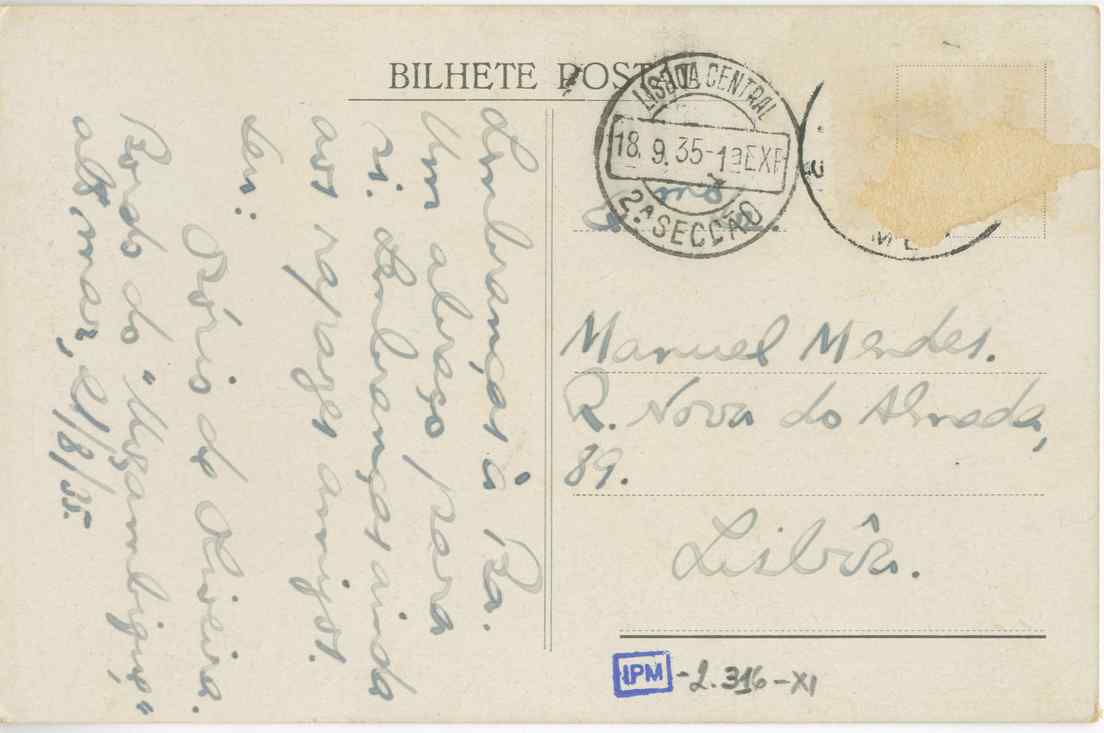 BILHETE POSTAL
LISBOA CENTRAL
18.9.35-1ªEXP
2ª SECÇÃO
Lembranças à Ba.
Um abraço para
si. Lembranças ainda
aos rapazes amigos.
Seu:
de Oliveira.
Bordo do "Moçambique"
alto mar, 21/8/35.
Exmo Sr.
Manuel Mendes.
R. Nova do Almada,
89.
Lisbôa.
IPM-2.316-XI